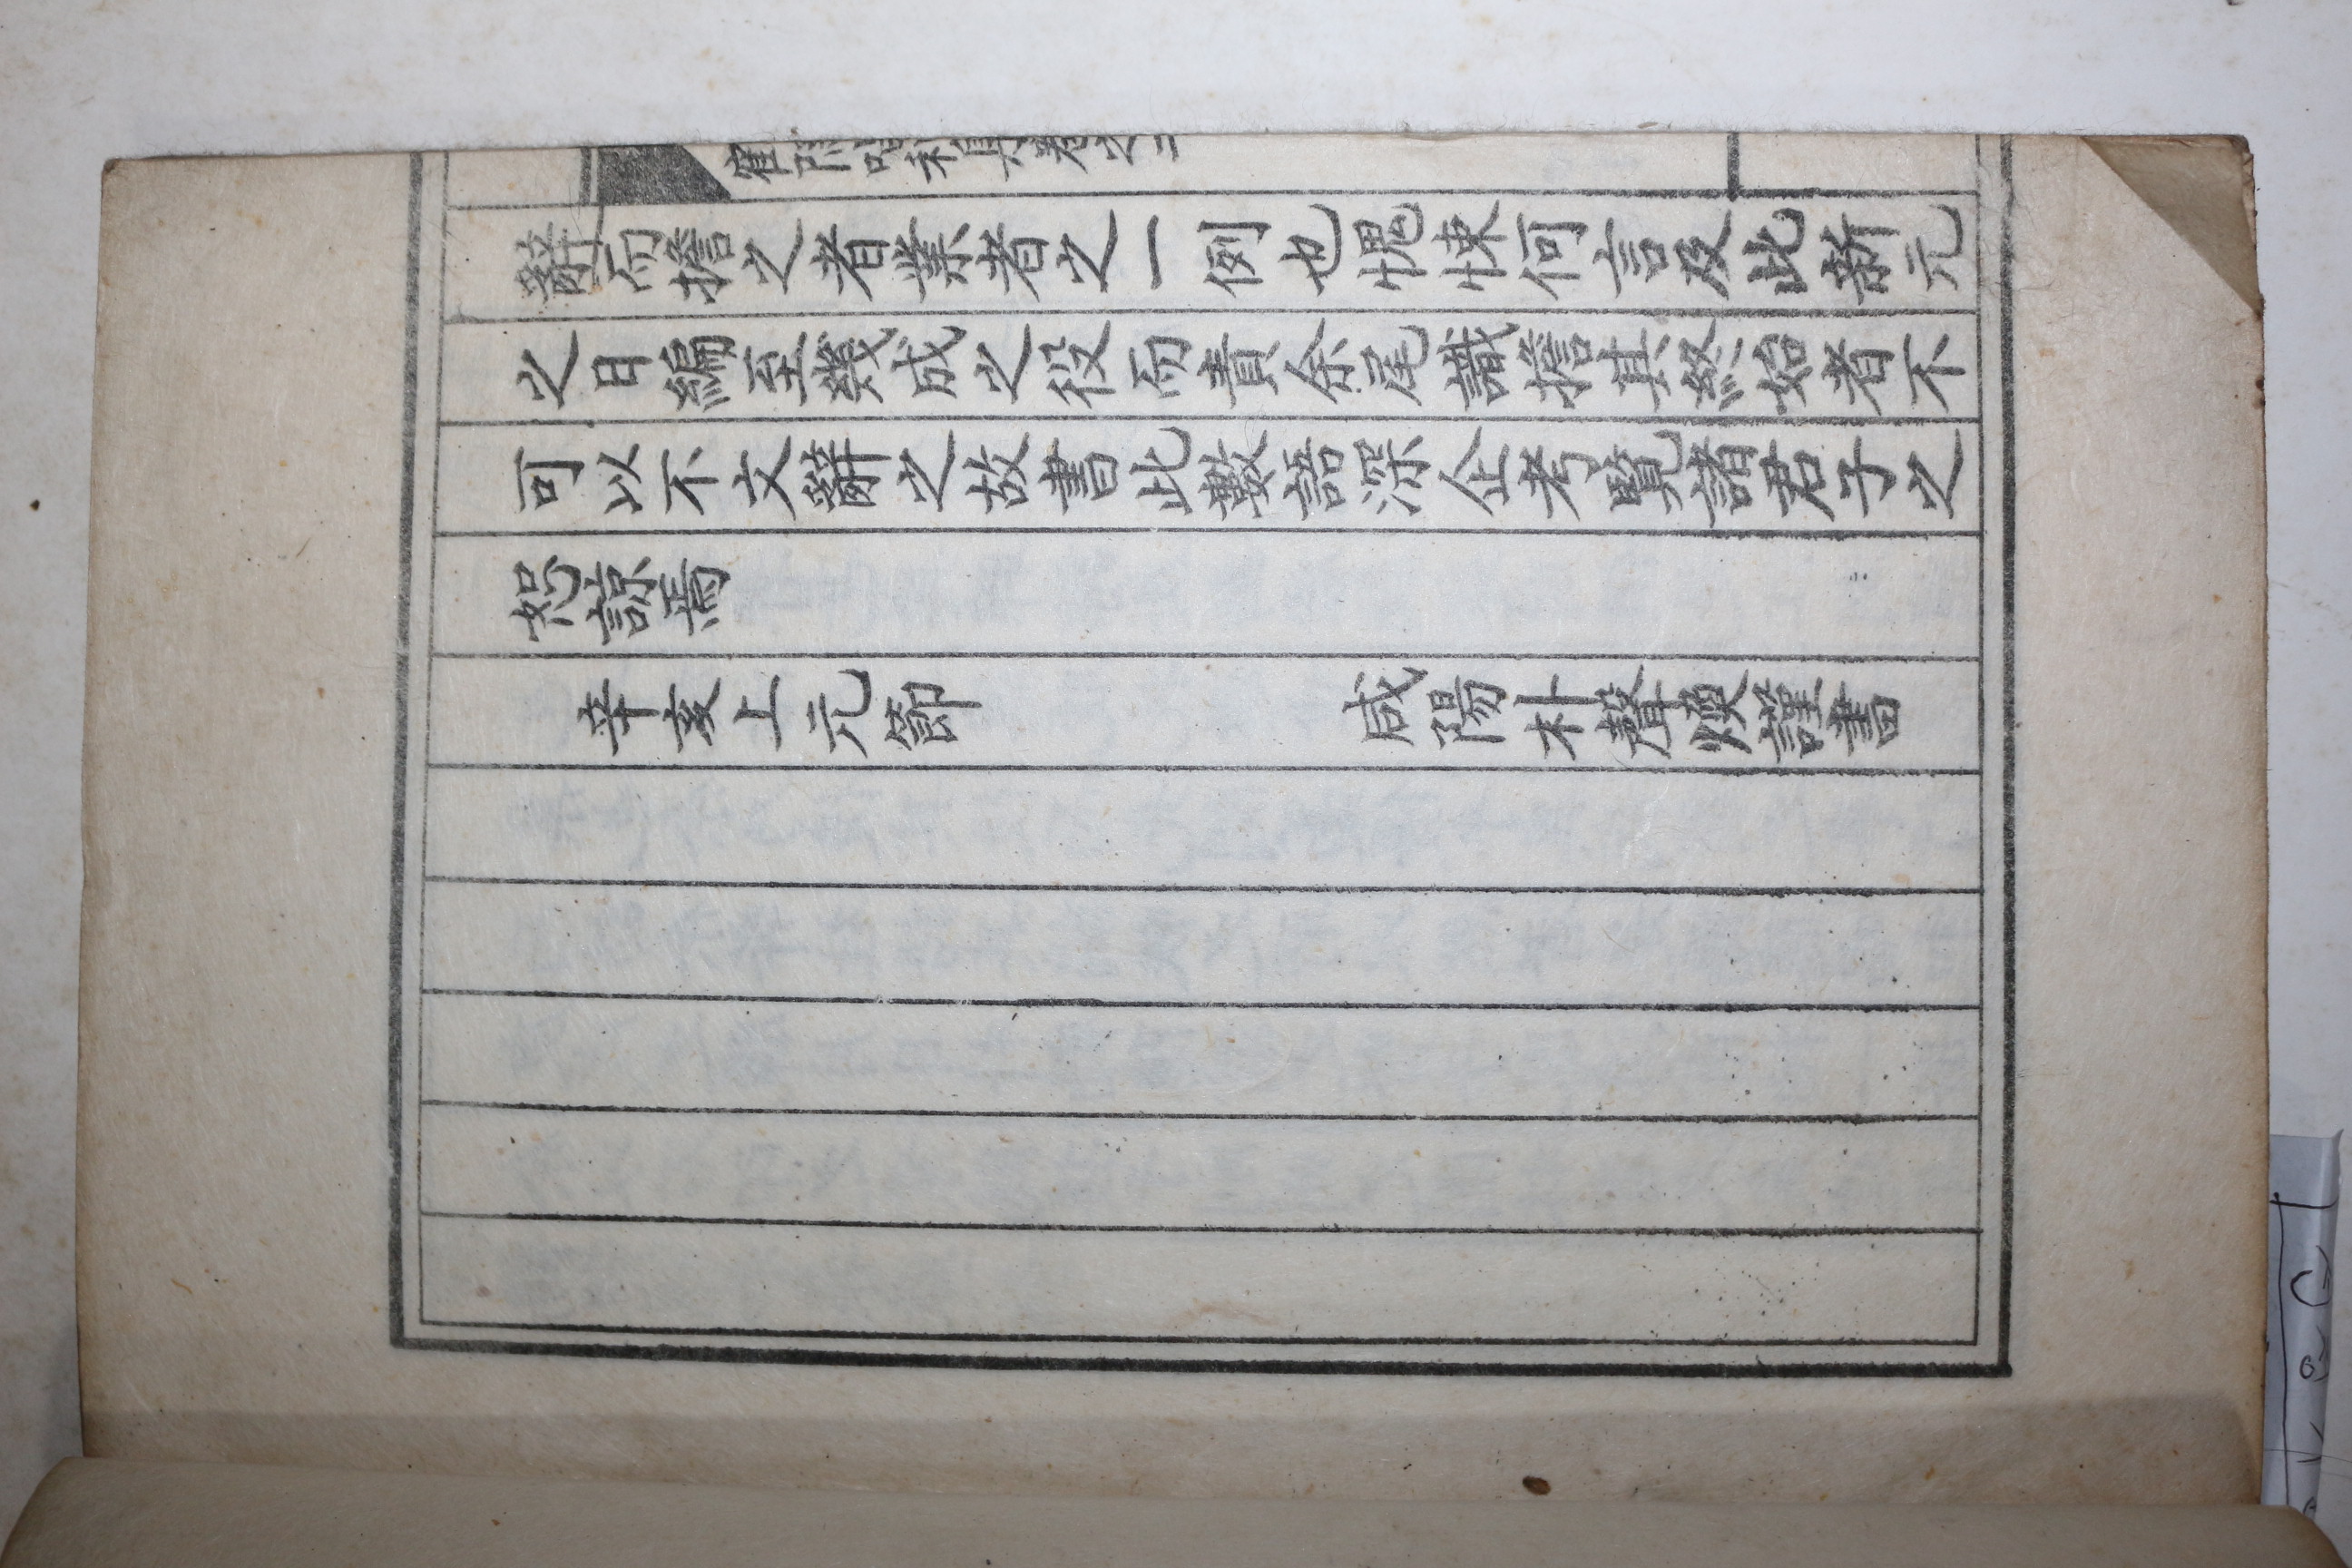 辭而擔之者業者之一例也愧悚何言及此新元
之日編至幾成之役而責余尾識擔其終始者不
可以不文辭之故書此數語深企考覽諸君子之
恕諒焉
辛亥上元節 咸陽朴聲煥謹書
集卷之二